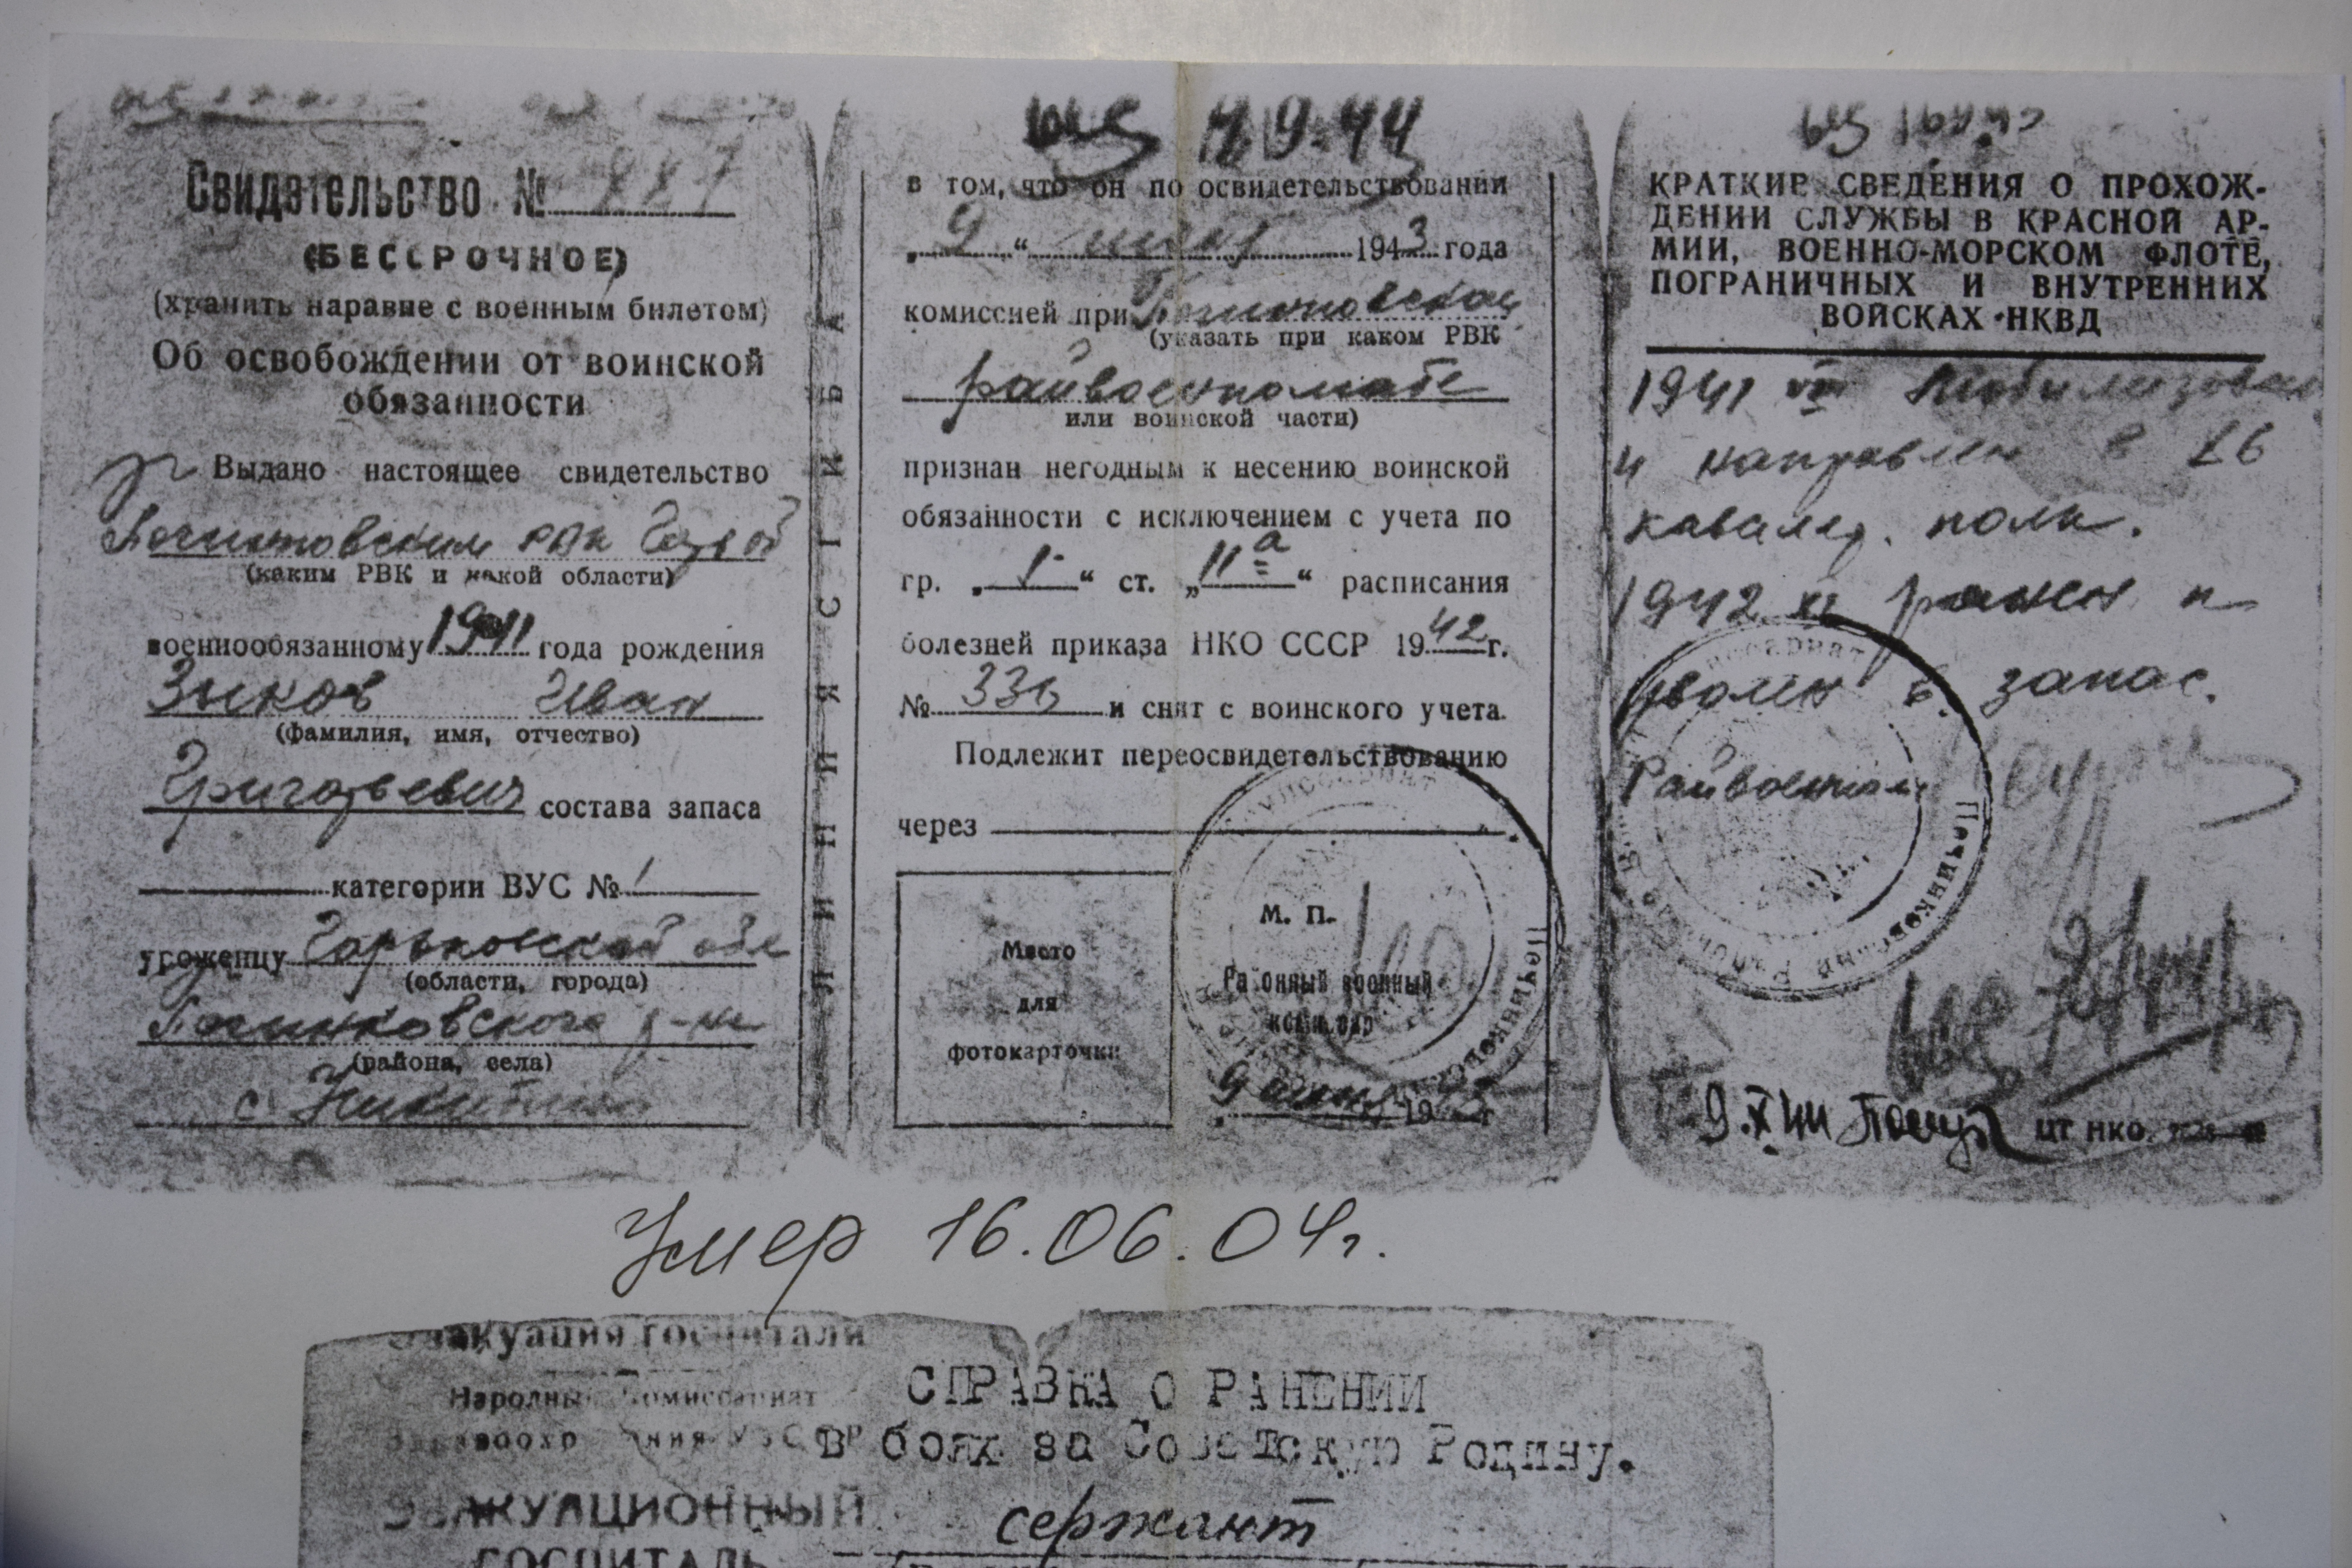 Свидетельство №
(БЕССРОЧНОЕ)
(хранить наравне с военным билетом)
Об освобождении от воинской
обязанности
Выдано настоящее свидетельство
Починковским рвк
(каким РВК и какой области)
военнообязанному 1911 года рождения
Зыков Иван
(фамилия, имя, отчество)
Григорьевич состава запаса
категории ВУС №
уроженцу Горьковской обл
(области, города)
Починковского р-на
(района, села)
с.
ЛИНИЯ СГИБА
4.9.44
в том, что он по освидетельствовании
„9“ 1943 года
комиссией при Починковском
(указать при каком РВК
райвоенкомате
или воинской части)
признан негодным к несению воинской
обязанности с исключением с учета по
гр. „1“ ст. „11а“ расписания
болезней приказа НКО СССР 1942 г.
№ 336 и снят с воинского учета.
Подлежит переосвидетельствованию
через
Место
для
фотокарточки
М. П.
Районный военный
комиссар
9
КРАТКИЕ СВЕДЕНИЯ О ПРОХОЖ-
ДЕНИИ СЛУЖБЫ В КРАСНОЙ АР-
МИИ, ВОЕННО-МОРСКОМ ФЛОТЕ,
ПОГРАНИЧНЫХ И ВНУТРЕННИХ
ВОЙСКАХ НКВД
1941 VIII Мобилизован
и направлен в 26
кавалер. полк.
1942 XI ранен и
уволен в запас.
Райвоенком
9.X 44 ЦТ НКО
Умер 16.06.04г.
Эвакуация госпитали
Народный Комиссариат
СПРАВКА О РАНЕНИИ
в боях за Советскую Родину.
ЭВАКУАЦИОННЫЙ
сержант
ГОСПИТАЛЬ